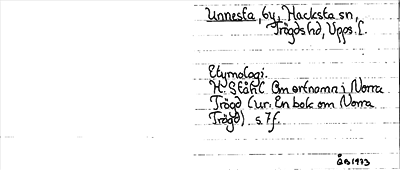 Unnesta, by, Hacksta sn,
Trögds hd, Upps. l.
Etymologi.
H. Ståhl Om ortnamn i Norra
Trögd (ur: En bok om Norra
Trögd) s. 7f.
ÅB 1973